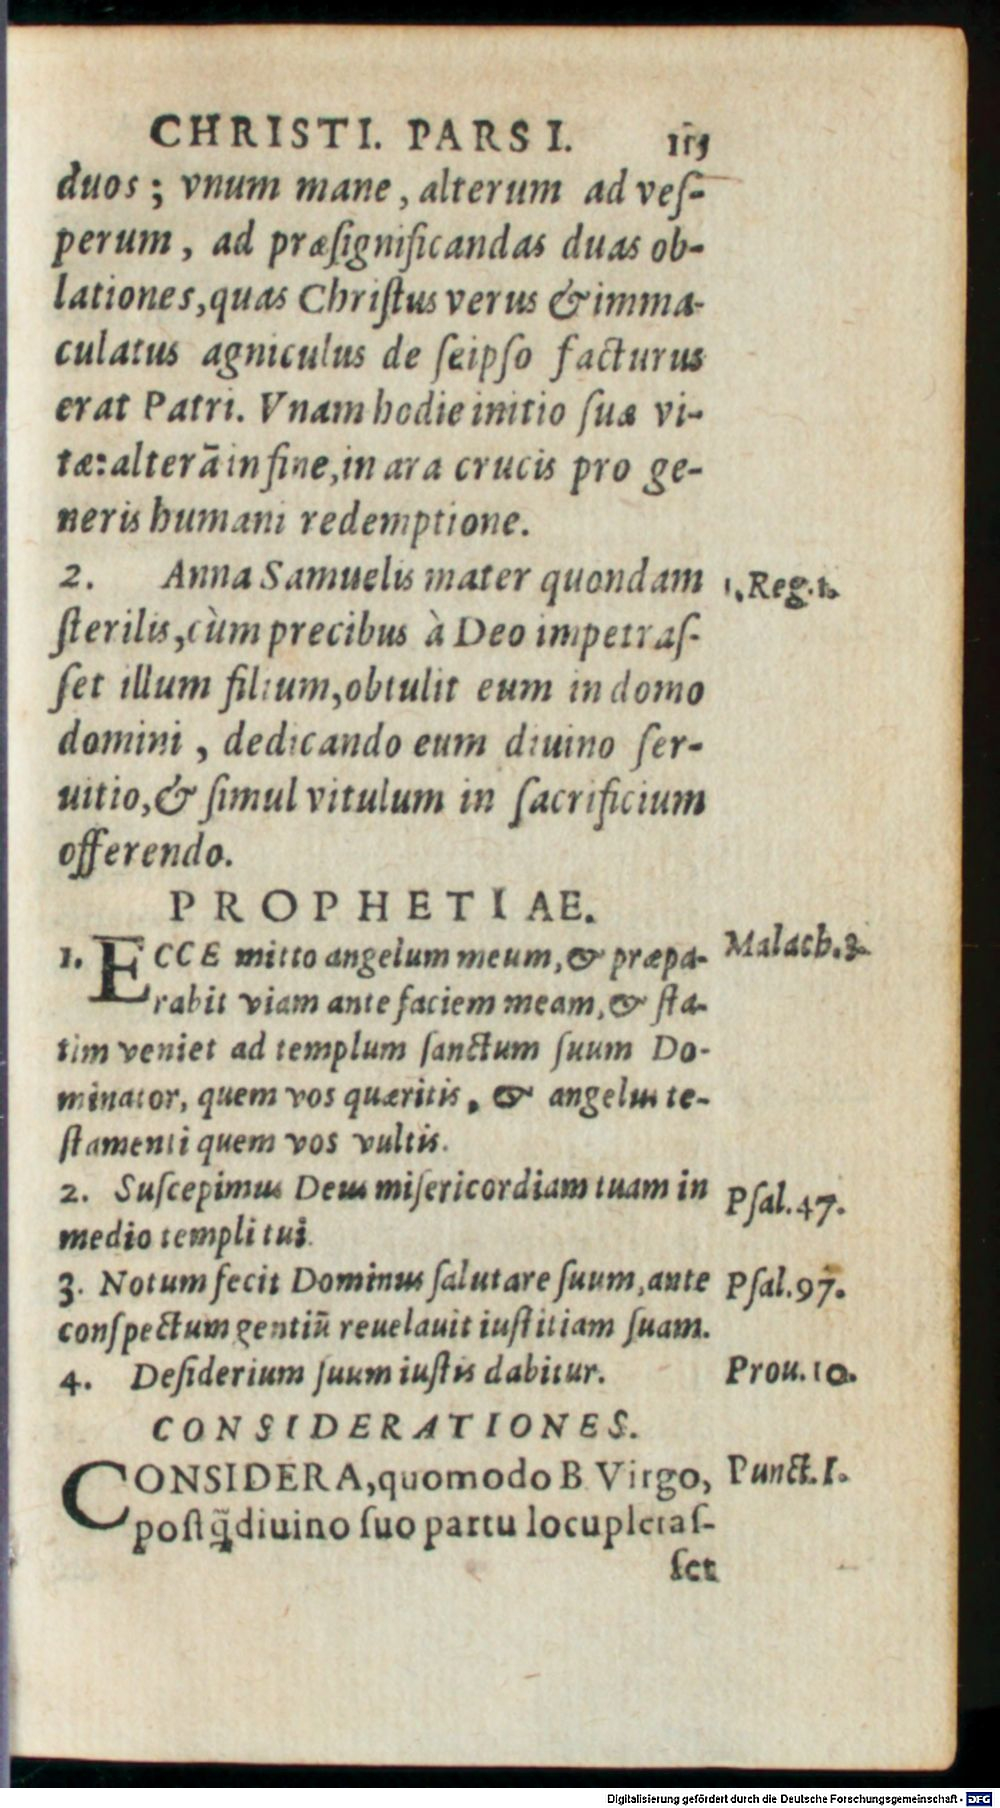 CHRISTI. PARS I. 115
duos; vnum mane, alterum ad veſ-
perum, ad præſignificandas duas ob-
lationes, quas Chriſtus verus & imma-
culatus agniculus de ſeipſo facturus
erat Patri. Vnam hodie initio ſuæ vi-
tæ: alterā in fine, in ara crucis pro ge-
neris humani redemptione.
2. Anna Samuelis mater quondam
1. Reg. 1.
ſterilis, cùm precibus à Deo impetraſ-
ſet illum filium, obtulit eum in domo
domini, dedicando eum diuino ſer-
uitio, & ſimul vitulum in ſacrificium
offerendo.
PROPHETIAE.
1. ECCE mitto angelum meum, & præpa-
Malach. 3.
rabit viam ante faciem meam, & ſta-
tim veniet ad templum ſanctum ſuum Do-
minator, quem vos quæritis, & angelus te-
ſtamenti quem vos vultis.
2. Suſcepimus Deus miſericordiam tuam in
Pſal. 47.
medio templi tui.
3. Notum fecit Dominus ſalutare ſuum, ante
Pſal. 97.
conſpectum gentiū reuelauit iuſtitiam ſuam.
4. Deſiderium ſuum iuſtis dabitur.
Prou. 10.
CONSIDERATIONES.
CONSIDERA, quomodo B Virgo,
Punct. I.
poſtq̃ diuino ſuo partu locupletaſ-
ſet
Digitalisierung gefördert durch die Deutsche Forschungsgemeinschaft - DFG